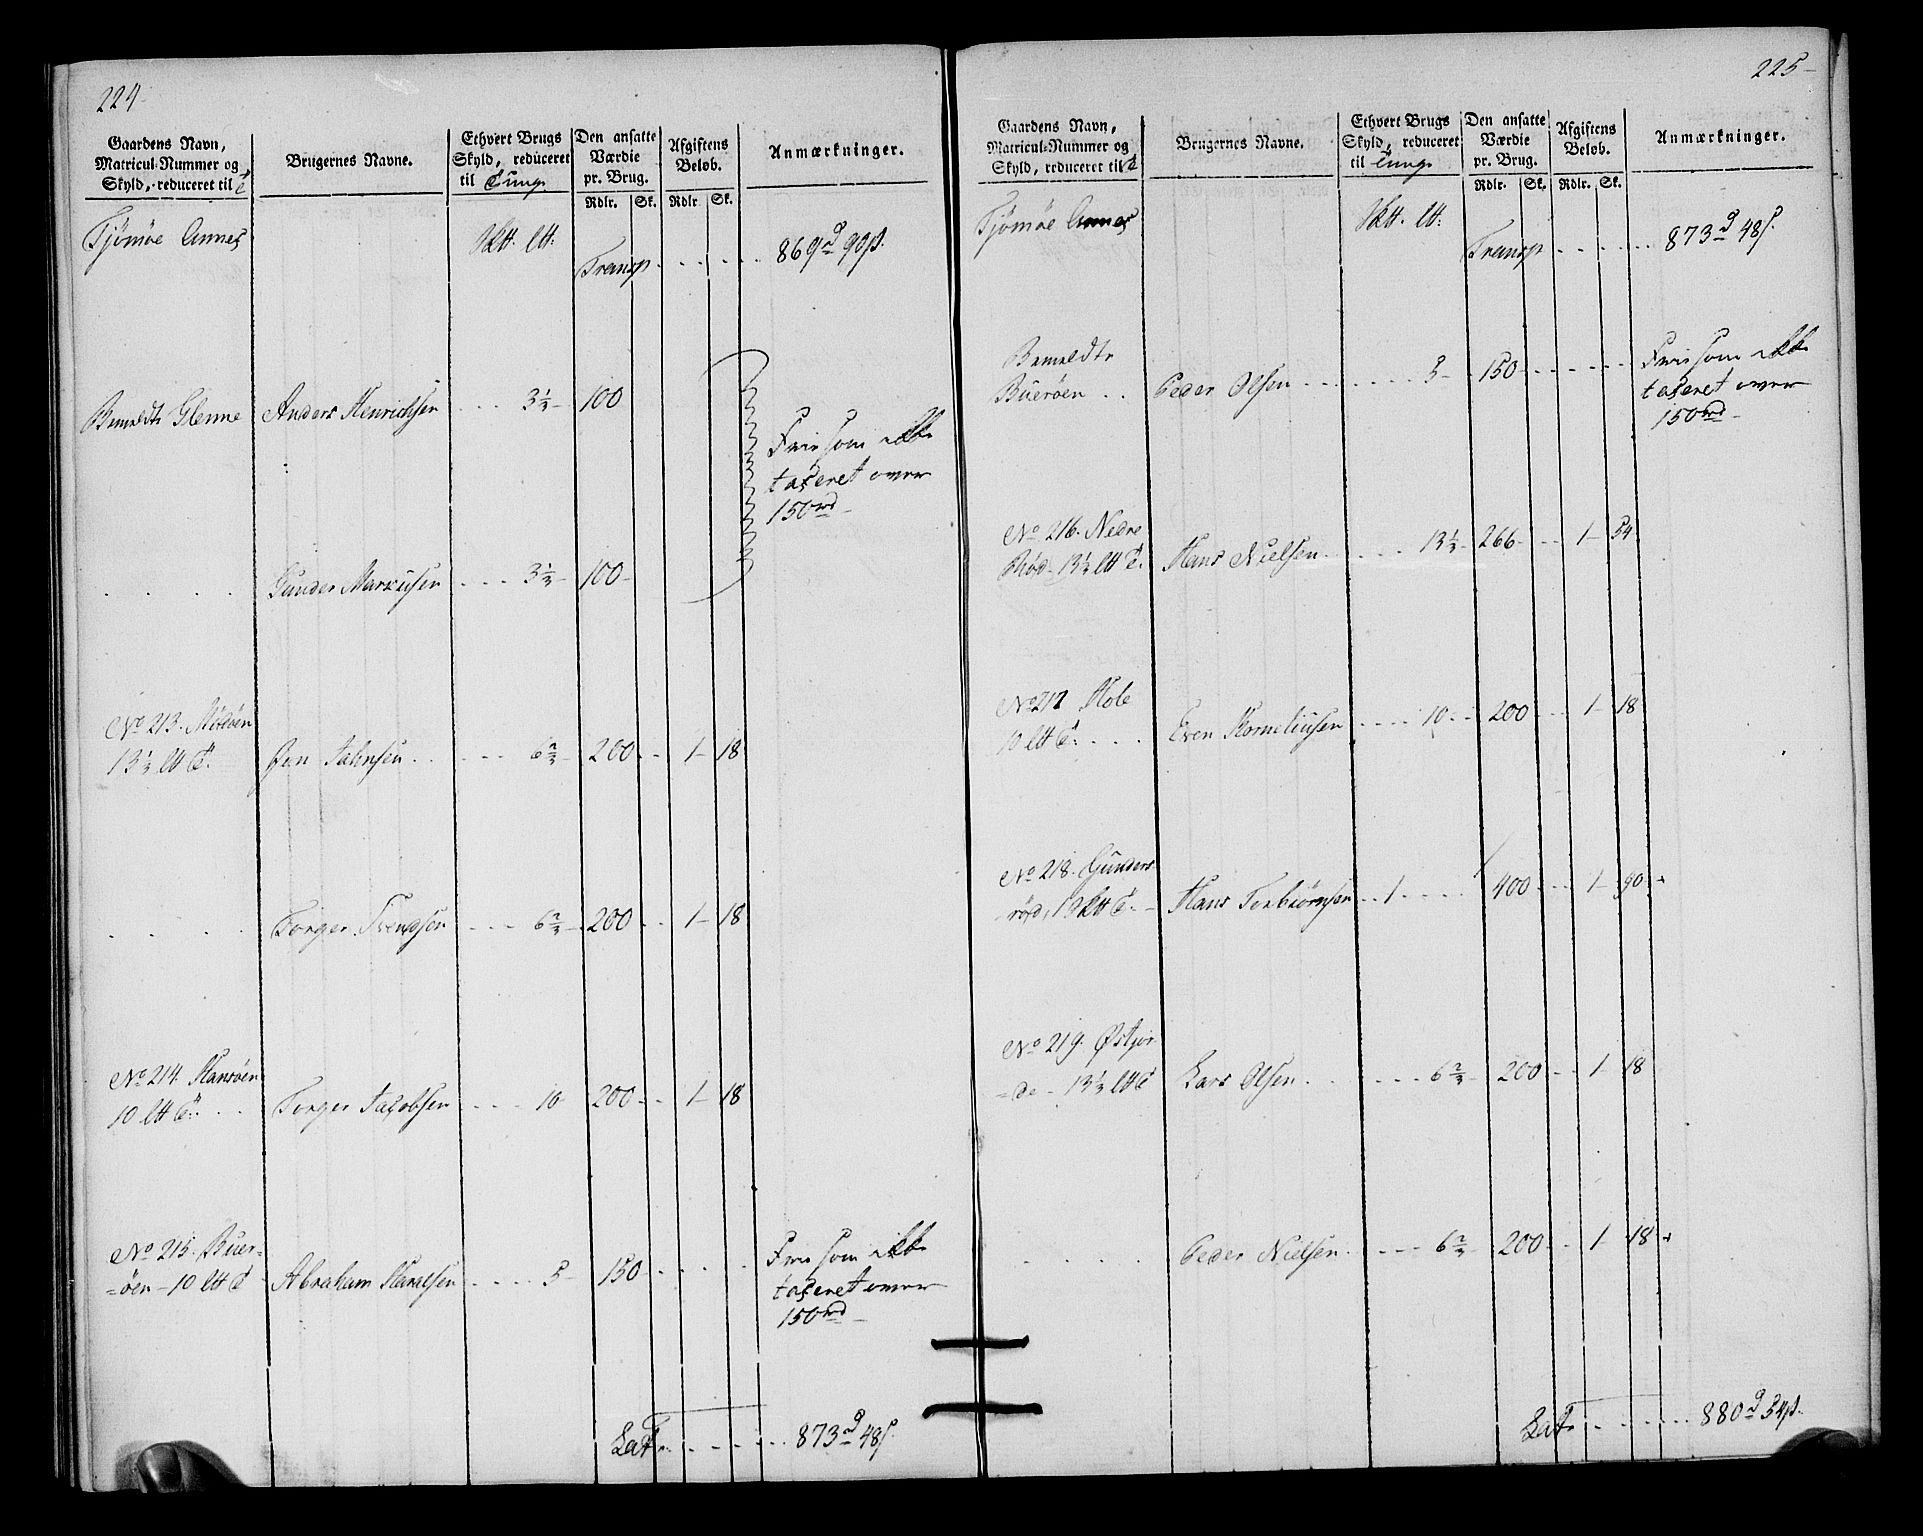 224
Gaardens Navn,
Matricul-Nummer og
Skyld, reduceret til T
Brugernes Navne.
Ethvert Brugs
Skyld, reduceret
til Tunge
Den ansatte
Værdie
pr. Brug.
Rdlr. Sk.
Afgiftens
Beløb.
Rdlr. Sk.
Anmærkninger.
Tjømøe Annex
Skt. lt:
Transp. . . . . . 869 d 90 s.
Bemeldte Glenne Anders Henrichsen . . . 3 1/3 - 100
Frie som ikke
taxeret over
150 rd -
. . . . Gunder Markusen . . . 3 1/3 - 100 -
No 213. Medøen
13 1/3 lt T. Jon Jahnsen . . . . . 6 2/3 - 200 - - 1 - 18
. . . . Torger Svendsen . . . 6 2/3 - 200 - - 1 - 18
No 214. Hansøen
10 lt T. . . Torger Jacobsen . . . 10 200 - - 1 - 18
No 215. Buer-
=øen - 10 lt T Abraham Harelsen . . . . 5 - 150 - . . . .
Frie som ikke
taxeret over
150 rd -
Lat. . . . . . . 873 d 48 s.
225
Gaardens Navn,
Matricul-Nummer og
Skyld, reduceret til T
Brugernes Navne.
Ethvert Brugs
Skyld, reduceret
til Tunge
Den ansatte
Værdie
pr. Brug.
Rdlr. Sk.
Afgiftens
Beløb.
Rdlr. Sk.
Anmærkninger.
Tjømøe Annex
Skt. lt:
Transp . . . . . . 873 d 48 s.
Bemeldte
Buerøen . . Peder Olsen . . . . . . . 5 - 150 - . . . . .
Frie som ikke
taxeret over
150 rd -
No 216. Nedre
Rød - 13 1/3 lt T. Hans Nielsen . . . . . 13 1/3 - 266 - - - 1 - 54
No 217 Hole
10 lt T: . . . Even Korneliussen . . . . 10 - - 200 - - - 1 - 18
No 218. Gunders
rød, 1 Skt T. - Hans Torbiørnsen . . 1 . . . . 400 - - - 1 - 90 -
No 219. Østjor-
=de - 13 1/3 lt T Lars Olsen . . . . . 6 2/3 - 200 - - 1 - 18
. . . . Peder Nielsen . . . . 6 2/3 - 200 - - 1 18
Lat. . . . . . . 880 d 34 s.